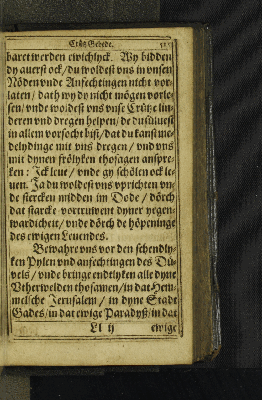 Crütz Gebede.
baret werden ewichlyck. Wy bidden
dy auerst ock / du woldest vns in vnsen
Nöden vnde Anfechtingen nicht vor-
laten / dath wy dy nicht mögen vorle-
sen / vnde woldest vns vnse Crütze lin-
deren vnd dregen helpen / de du süluest
in allem vorsocht bist / dat du kanst me-
delydinge mit vns dregen / vnd vns
mit dynen frölyken thosagen anspre-
ken : Ick leue / vnde gy schölen ock le-
uen. Ja du woldest vns vprichten vn-
de stercken midden im Dode / dörch
dat starcke vortruwent dyner yegen-
wardicheit / vnde dörch de höpeninge
des ewigen Leuendes.
Beware vns vor den schendly-
ken Pylen vnd anfechtingen des Dü-
uels / vnde bringe endtlyken alle dyne
Vtherwelden thosamen / in dat Hem-
melsche Jerusalem / in dyne Stadt
Gades / in dat ewige Paradyß / in dat
Ll ij
ewige